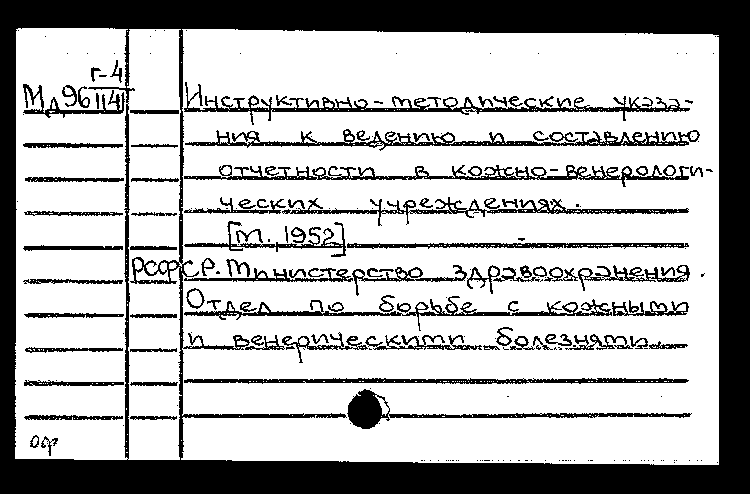 г-4
Мд96 114 Инструктивно-методические указа-
ния к ведению и составлению
отчетности в кожно-венерологи-
ческих учреждениях.
[М., 1952]
РСФСР. Министерство здравоохранения.
Отдел по борьбе с кожными
и венерическими болезнями.